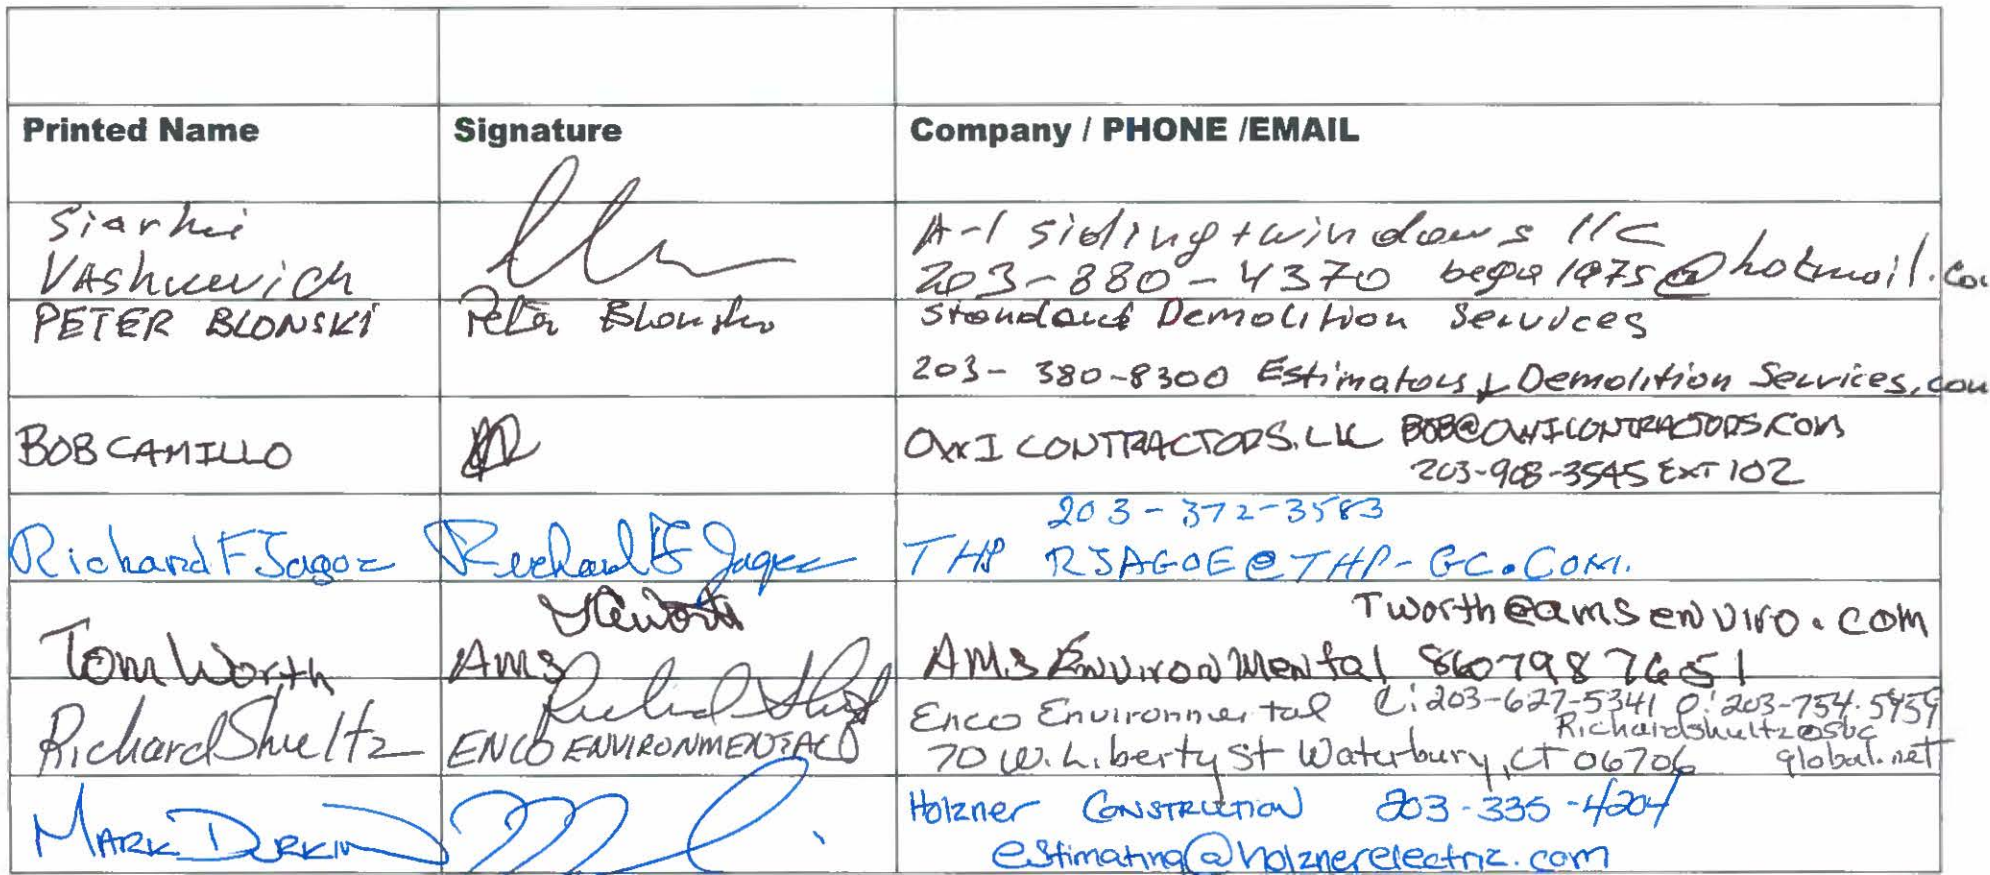 Printed Name Signature Company / PHONE /EMAIL
Siarhei
VAshkevich
A-1 siding + windows llc
203-880-4370 @hotmail.co
PETER BLONSKI Peter Blonski
Standard Demolition Services
203-380-8300 Estimators Demolition Services.com
BOB CAMILLO
CONTRACTORS.LLC
203-908-3545 EXT 102
Richard F Jagoe Richard F Jagoe
203-372-3583
THP RJAGOE@THP-GC.COM.
Tom Worth
TWorth@amsenviro.com
AMS
AMS Environmental 8607987651
Richard Shueltz
ENCO ENVIRONMENTAL
Enco Environmental C:203-627-5341 O:203-754-5959
Richardshultz@sbc
70 W. Liberty St Waterbury, CT 06706 global.net
MARK DURKIN
Holzner CONSTRUCTION 203-335-4204
estimating@holznerelectric.com